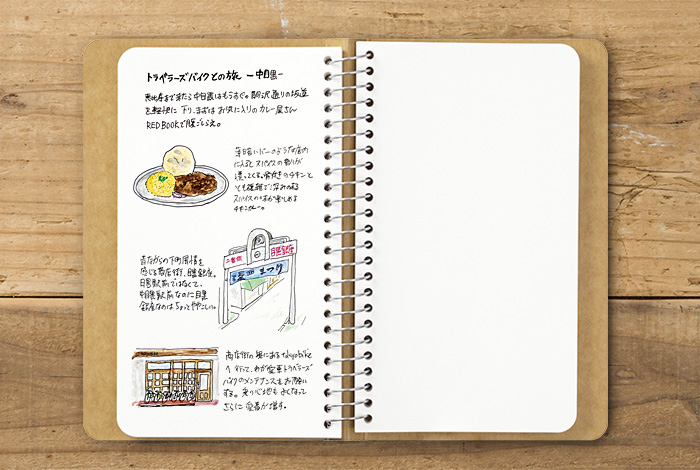 トラベラーズバイクとの旅 ー中目黒ー
恵比寿まで来たら中目黒はもうすぐ。駒沢通りの坂道
を軽快に下り、まずはお気に入りのカレー屋さん
RED BOOKで腹ごしらえ。
スパイスの香りが
漂ってくる。骨付きのチキンと
とても複雑で深みのある
スパイスの味が楽しめる
チキンカレー。
二番街
目黒銀座
まつり
昔ながらの下町風情を
感じる商店街、目黒銀座。
目黒駅前ではなくて、
中目黒駅前なのに目黒
銀座なのはちょっとややこしい。
商店街の奥にあるtokyobike
へ行って、わが愛車トラベラーズ
バイクのメンテナンスもお願い
する。乗り心地もよくなって
さらに愛着が増す。